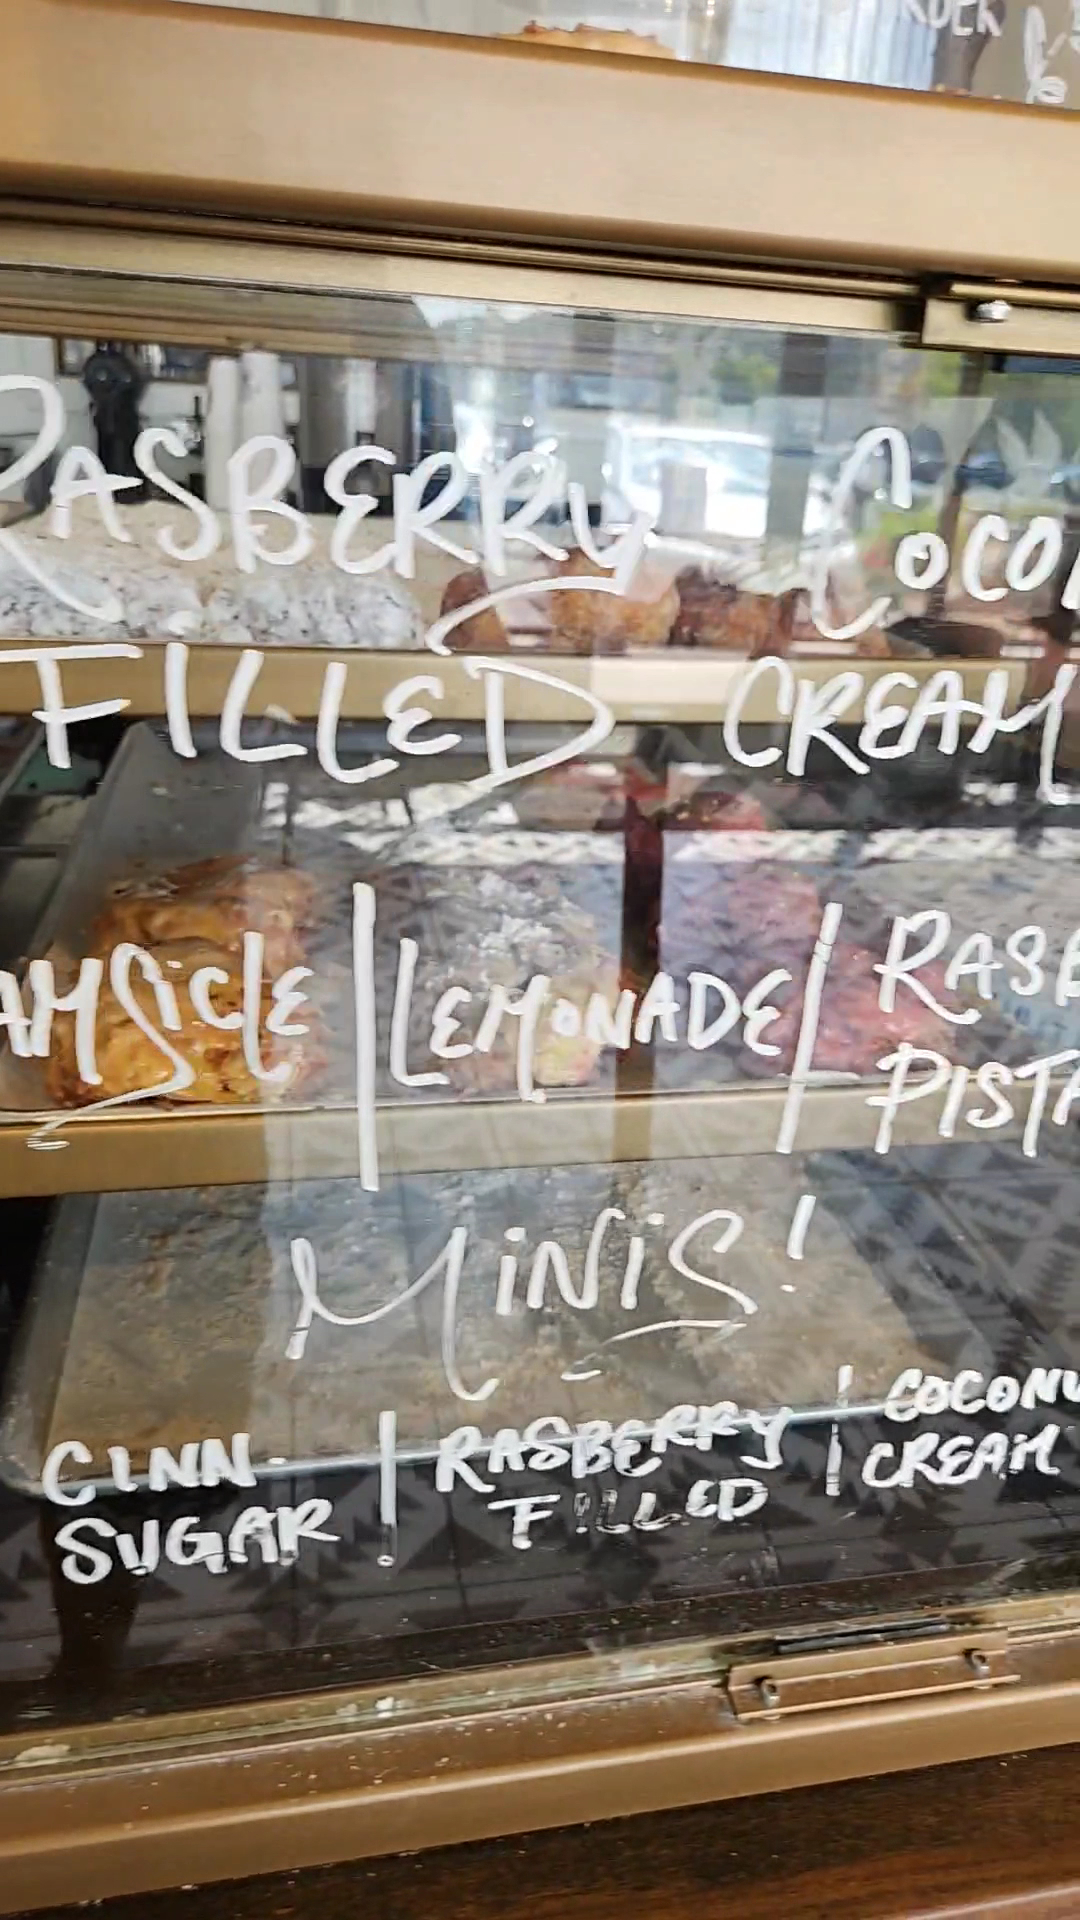 RASBERRY COCO
FILLED CREAM
AMSICLE | LEMONADE | RASB
PISTA
MINIS!
CINN. | RASBERRY | COCONU
SUGAR FILLED CREAM